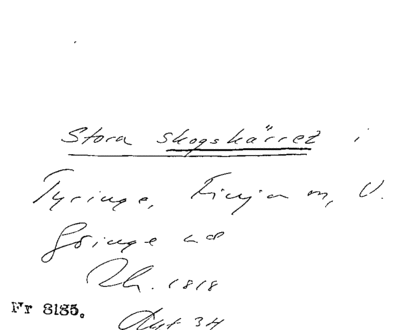 Stora skogskärret i
Tyringe, Finja sn, V.
Göinge hd
Rk. 1818
Fr 8185.
Akt 34